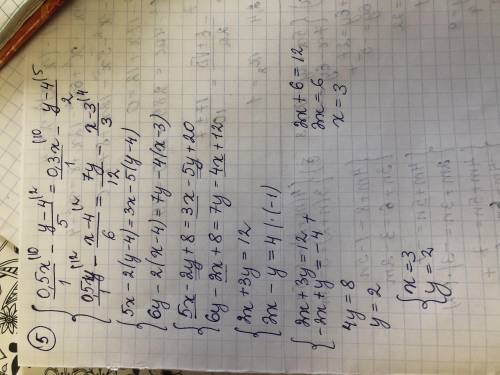 ⑤ { 0,5x/1 |10 - y-4/5 |2 = 0,3x/1 |10 - y-4/2 |5
{ 0,5y/1 |12 - x-4/6 |2 = 7y/12 - x-3/3 |4
{ 5x-2(y-4)=3x-5(y-4)
{ 6y-2(x-4)=7y-4(x-3)
{ 5x-2y+8=3x-5y+20
{ 6y-2x+8=7y-4x+12
{ 2x+3y=12
{ 2x-y=4 |·(-1)
{ 2x+3y=12 +
{ -2x+y=-4
4y=8
y=2
2x+6=12
2x=6
x=3
{ x=3
{ y=2